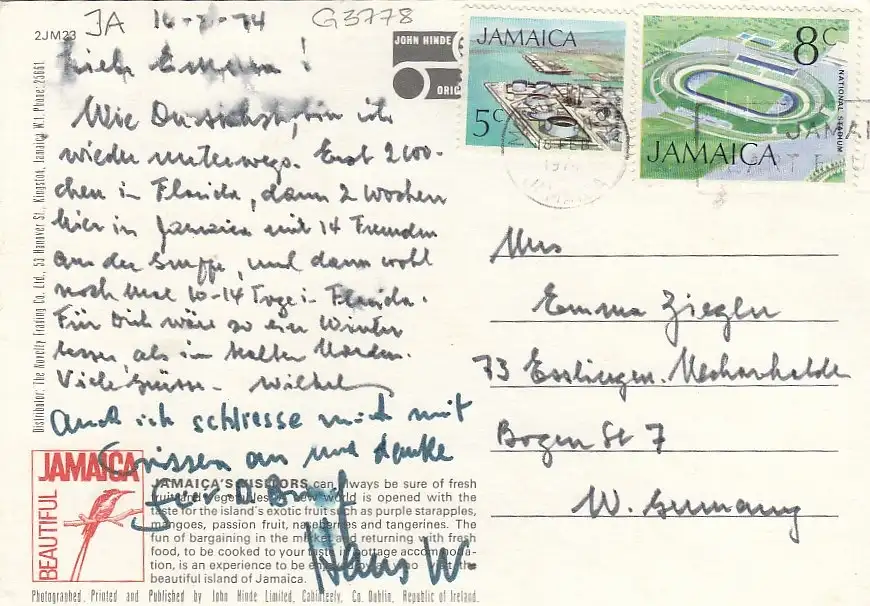 JA 16-2-74 G3778
2JM23
Liebe Emma!
Wie Du siehst, bin ich
wieder unterwegs. Erst 2 Wo-
chen in Florida, dann 2 Wochen
hier in Jamaica mit 14 Freunden
aus der Gruppe, und dann wohl
noch mal 10-14 Tage in Florida.
Für Dich wäre so ein Winter
besser als im kalten Norden.
Viele Grüsse - Wilhelm
Auch ich schliesse mich mit
Grüssen an und danke
für d Brief
Hans W-
JOHN HINDE
ORIG
JAMAICA
5c
JAMAICA
8c
NATIONAL STADIUM
FEB
JAMAI
Mrs
Emma Ziegler
73 Esslingen. Neckarhalde
Bogen St 7
W. Germany
Distributor: The Novelty Trading Co., Ltd., 53 Hanover St., Kingston, Jamaica W.I. Phone: 25661
BEAUTIFUL JAMAICA
JAMAICA'S VISITORS can always be sure of fresh
fruit and vegetables. A new world is opened with the
taste for the island's exotic fruit such as purple starapples,
mangoes, passion fruit, naseberries and tangerines. The
fun of bargaining in the market and returning with fresh
food, to be cooked to your taste in cottage accommoda-
tion, is an experience to be enjoyed by all who visit the
beautiful island of Jamaica.
Photographed, Printed and Published by John Hinde Limited, Cabinteely, Co. Dublin, Republic of Ireland.